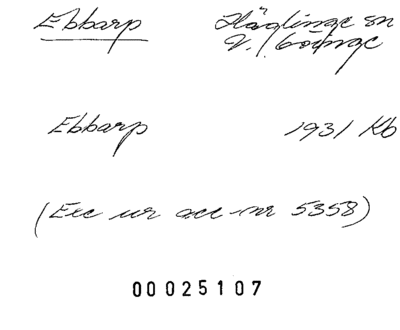 Ebbarp Häglinge sn
V. Göinge
Ebbarp 1931 Kb
(Exc ur acc-nr 5358)
00025107